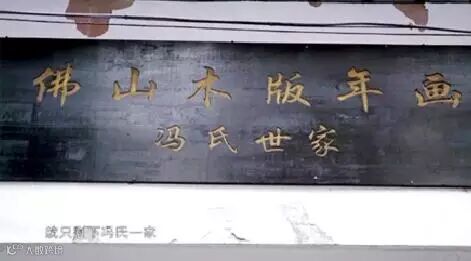 佛山木版年画
冯氏世家
就只剩下冯氏一家
大数跨境